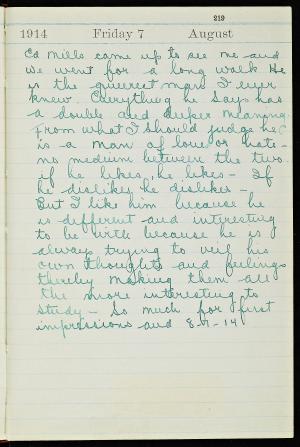 219
1914 Friday 7 August
Ed Mills came up to see me and
we went for a long walk He
is the queerest man I ever
knew. Everything he says has
a double and deeper meaning.
From what I should judge he
is a man of love or hate -
no medium between the two.
if he likes, he likes - If
he dislikes he dislikes -
But I like him because he
is different and interesting
to be with because he is
always trying to veil his
own thoughts and feelings
thereby making them all
the more interesting to
study - So much for first
impressions and 8-7-14